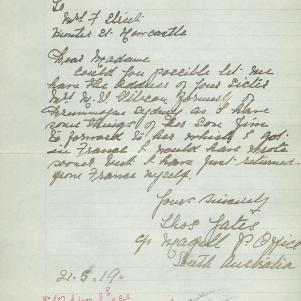 To
Mrs F
Hunter St Newcastle
Dear Madame
Could you possible let me
have the address of your Sister
Mrs M. V. Gibson formerly of
Drummoyne Sydney as I have
some things of her Son Jim
to forward to her which I got
in France I would have wrote
sooner but I have just returned
from France myself.
Yours Sincerely
Thos Yates
c/o Magill P. Office
South Australia
21.5.19.